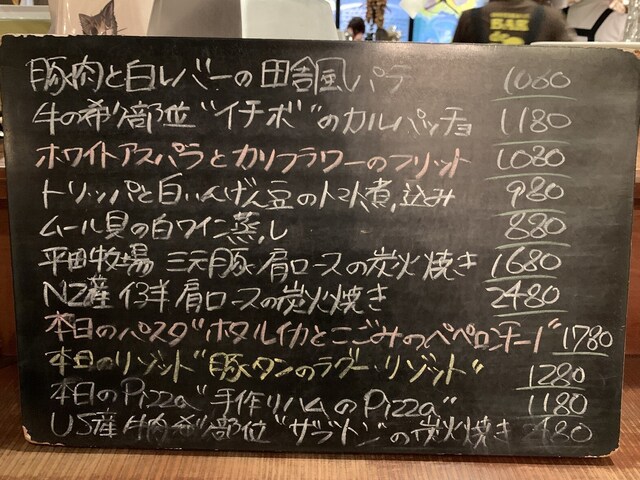 BAR
豚肉と白レバーの田舎風パテ 1080
牛の希少部位"イチボ"のカルパッチョ 1180
ホワイトアスパラとカリフラワーのフリット 1080
トリッパと白いんげん豆のトマト煮込み 980
ムール貝の白ワイン蒸し 880
平田牧場 三元豚肩ロースの炭火焼き 1680
NZ産 仔羊肩ロースの炭火焼き 2480
本日のパスタ"ホタルイカとこごみのペペロンチーノ" 1780
本日のリゾット"豚タンのラグーリゾット" 1280
本日のPizza"手作りハムのPizza" 1180
US産牛肉希少部位"ザブトン"の炭火焼き 2480